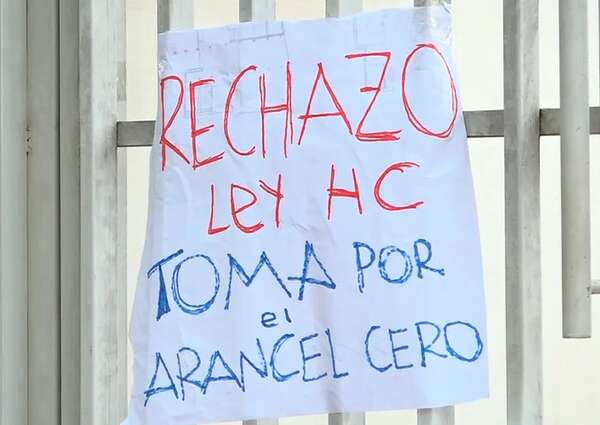 RECHAZO
LEY HC
TOMA POR
el
ARANCEL CERO